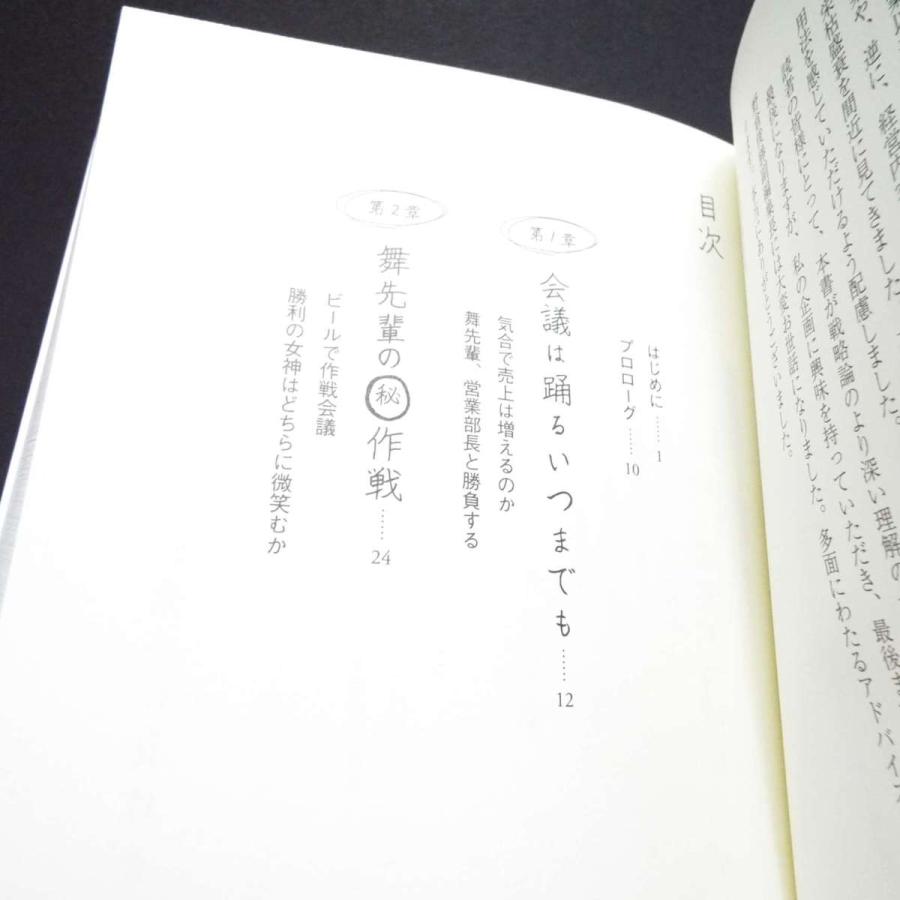 や、逆に、経営内
栄枯盛衰を間近に見てきました
用法を感じていただけるよう配慮しました。
読者の皆様にとって、本書が戦略論のより深い理解の
最後になりますが、私の企画に興味を持っていただき、最後ま
編集長には大変お世話になりました。多面にわたるアドバイス
ありがとうございました。
目次
はじめに……1
プロローグ……10
第1章
会議は踊るいつまでも……12
気合で売上は増えるのか
舞先輩、営業部長と勝負する
第2章
舞先輩の㊙作戦……24
ビールで作戦会議
勝利の女神はどちらに微笑むか